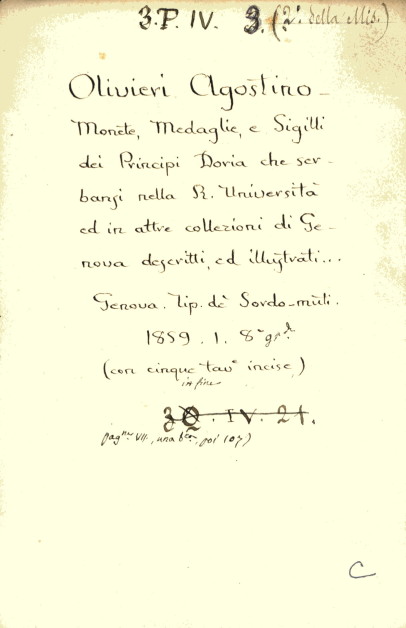 3.P. IV. 3. (2ª della Mis.)
Olivieri Agostino –
Monete, Medaglie, e Sigilli
dei Principi Doria che ser-
banſi nella R. Università
ed in altre collezioni di Ge-
nova deſcritti, ed illuſtrati...
Genova. Tip. de' Sordo-muti.
1859. 1. 8º gr.d
(con cinque tavᵉ incise)
in fine
3 Q. IV. 21.
pagne VII, una b.ca, poi 107)
C